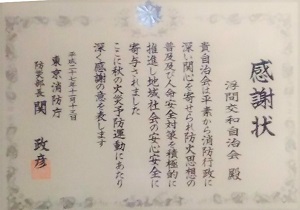 感謝状
浮間交和自治会 殿
貴自治会は平素から消防行政に
深い関心を寄せられ防火思想の
普及及び人命安全対策を積極的に
推進し地域社会の安心安全に
寄与されました
ここに秋の火災予防運動にあたり
深く感謝の意を表します
平成二十七年十一月十三日
東京消防庁
防災部長 関 政彦